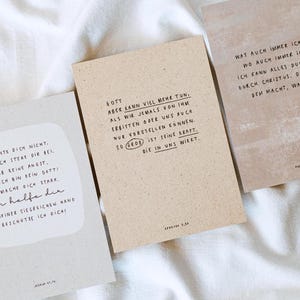 TE DICH NICHT,
CH STEHE DIR BEI.
BE KEINE ANGST,
CH BIN DEIN GOTT!
MACHE DICH STARK,
h helfe dir
EINER SIEGREICHEN HAND
BESCHÜTZE ICH DICH!
JESAJA 41,10
GOTT
ABER KANN VIEL MEHR TUN,
ALS WIR JEMALS VON IHM
ERBITTEN ODER UNS AUCH
NUR VORSTELLEN KÖNNEN.
SO GROß IST SEINE KRAFT,
DIE IN UNS WIRKT.
EPHESER 3,20
WAS AUCH IMMER IC
WO AUCH IMMER I
ICH KANN ALLES DU
DURCH CHRISTUS,
DER MACHT, WA